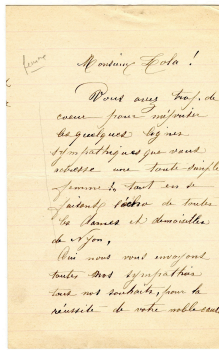 femme
Monsieur Zola !
Vous avez trop de
coeur pour mépriser
les quelques lignes
sympathiques que vous
adresse une toute simple
femme, tout en se
faisant l'écho de toutes
les dames et demoiselles
de Nyon,
Oui nous vous envoyons
toutes nos sympathies
tous nos souhaits, pour la
réussite de votre noble